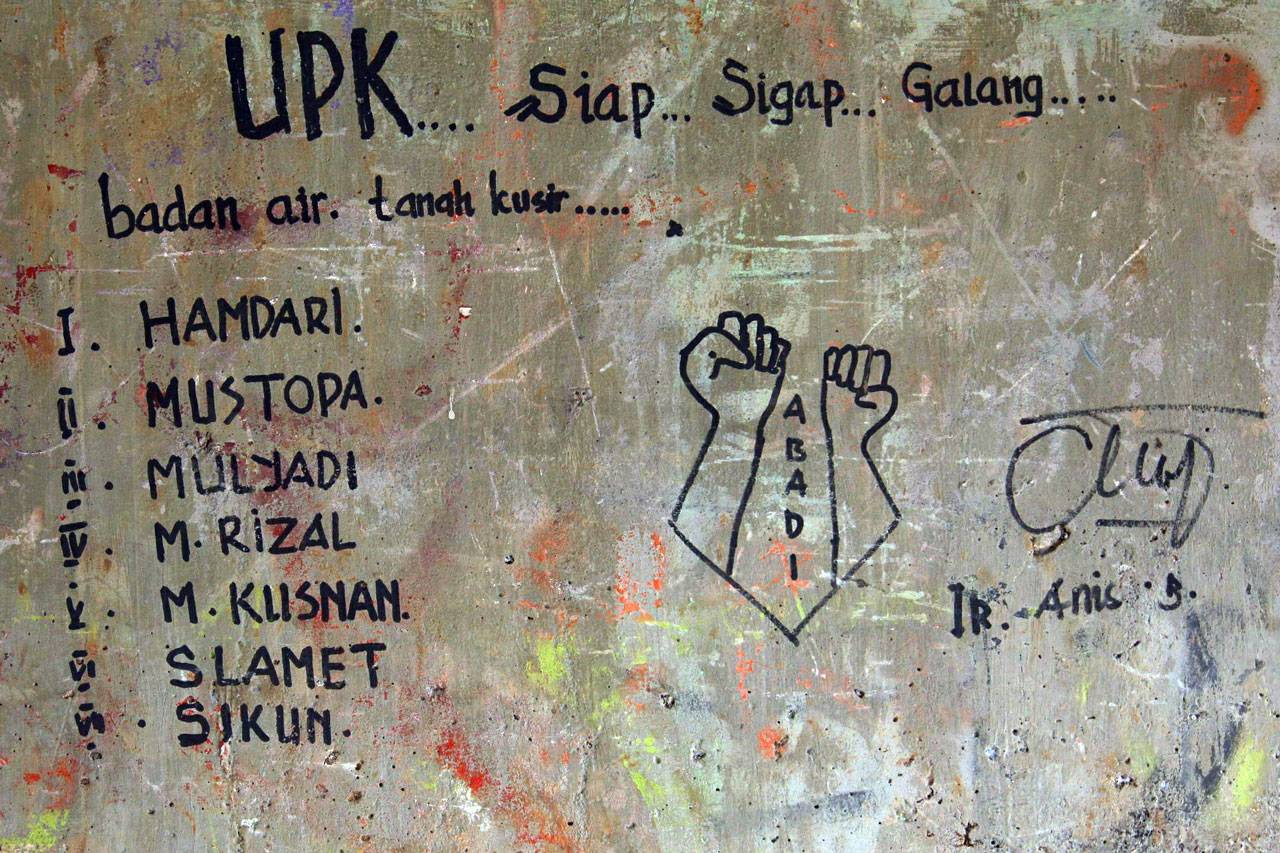 UPK.... Siap... Sigap... Galang.....
badan air. tanah kusir.....
I. HAMDARI.
II. MUSTOPA.
III. MULYADI
IV. M. RIZAL
V. M. KUSNAN.
VI. SLAMET
VII. SIKUN.
ABADI
IR. Anis . S.